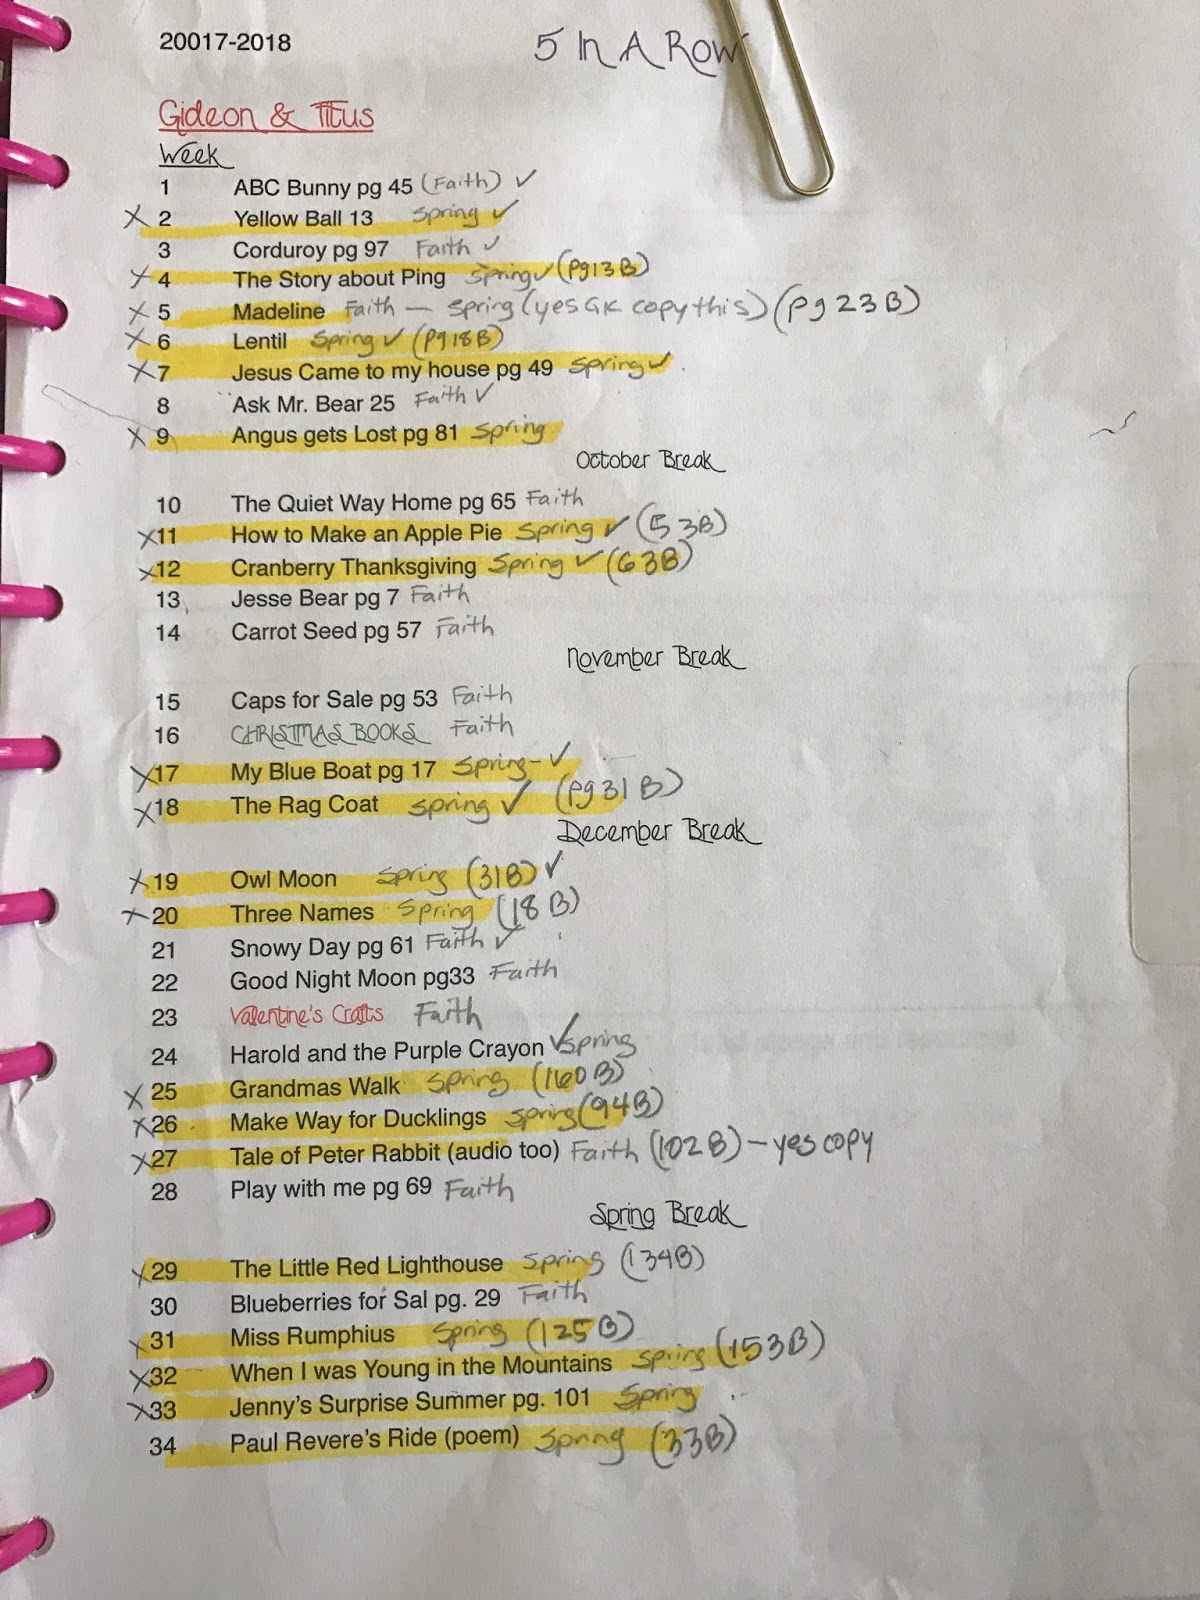 20017-2018 5 In A Row
Gideon & Titus
Week
1 ABC Bunny pg 45 (Faith) ✓
X 2 Yellow Ball 13 Spring ✓
3 Corduroy pg 97 Faith ✓
X 4 The Story about Ping Spring ✓ (pg 13 B)
X 5 Madeline Faith — Spring (yes GK copy this) (pg 23 B)
X 6 Lentil Spring ✓ (pg 18 B)
X 7 Jesus Came to my house pg 49 Spring ✓
8 Ask Mr. Bear 25 Faith ✓
X 9 Angus gets Lost pg 81 Spring
October Break
10 The Quiet Way Home pg 65 Faith
X 11 How to Make an Apple Pie Spring ✓ (53B)
X 12 Cranberry Thanksgiving Spring ✓ (63B)
13 Jesse Bear pg 7 Faith
14 Carrot Seed pg 57 Faith
November Break
15 Caps for Sale pg 53 Faith
16 CHRISTMAS BOOKS Faith
X 17 My Blue Boat pg 17 Spring - ✓
X 18 The Rag Coat Spring ✓ (pg 31 B)
December Break
X 19 Owl Moon Spring (31B) ✓
X 20 Three Names Spring (18 B)
21 Snowy Day pg 61 Faith ✓
22 Good Night Moon pg33 Faith
23 Valentine's Crafts Faith
24 Harold and the Purple Crayon ✓ Spring
X 25 Grandmas Walk Spring (160 B)
X 26 Make Way for Ducklings Spring (94B)
X 27 Tale of Peter Rabbit (audio too) Faith (102 B) — yes copy
28 Play with me pg 69 Faith
Spring Break
X 29 The Little Red Lighthouse Spring (134B)
30 Blueberries for Sal pg. 29 Faith
X 31 Miss Rumphius Spring (125 B)
X 32 When I was Young in the Mountains Spring (153B)
X 33 Jenny's Surprise Summer pg. 101 Spring
34 Paul Revere's Ride (poem) Spring (33B)